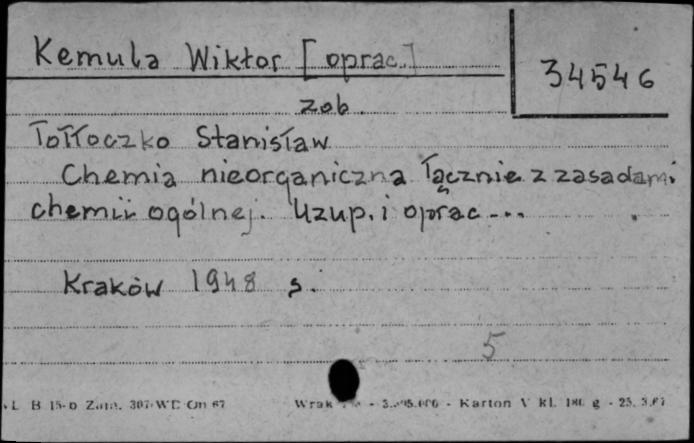 Kemula Wiktor [oprac.]
34546
zob.
Tołłoczko Stanisław
Chemia nieorganiczna łącznie z zasadami
chemii ogólnej. Uzup. i oprac...
Kraków 1948 s.
5
B 15-b Zam. 307 WD On 67 Karton V kl. 180 g - 25. 3.67